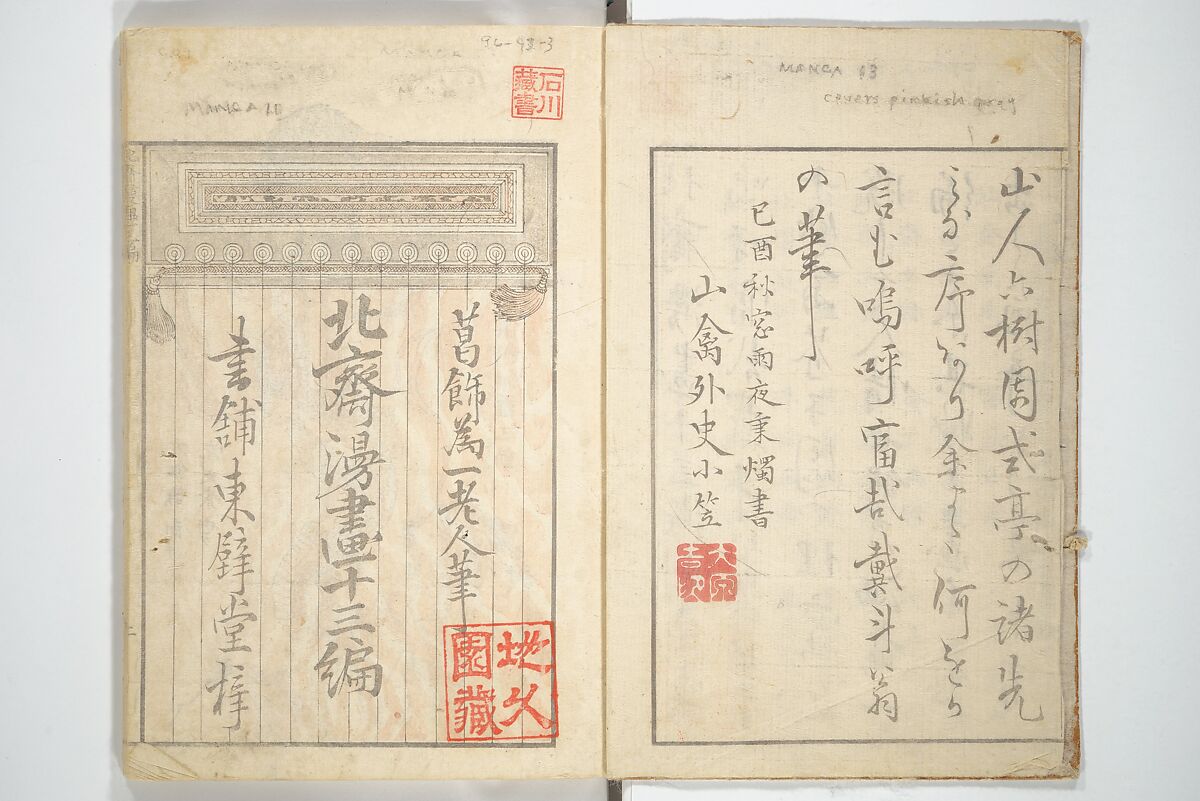 MANGA 13
covers pinkish gray
山人六樹園式亭の諸先
序あり余また何をか
言む嗚呼富哉戴斗翁
の筆
己酉秋窓雨夜秉燭書
山禽外史小笠
96-93-3
石川
藏書
MANGA 11
葛飾為一老人筆
北齋漫畫十三編
書舗東壁堂梓
地久
園藏